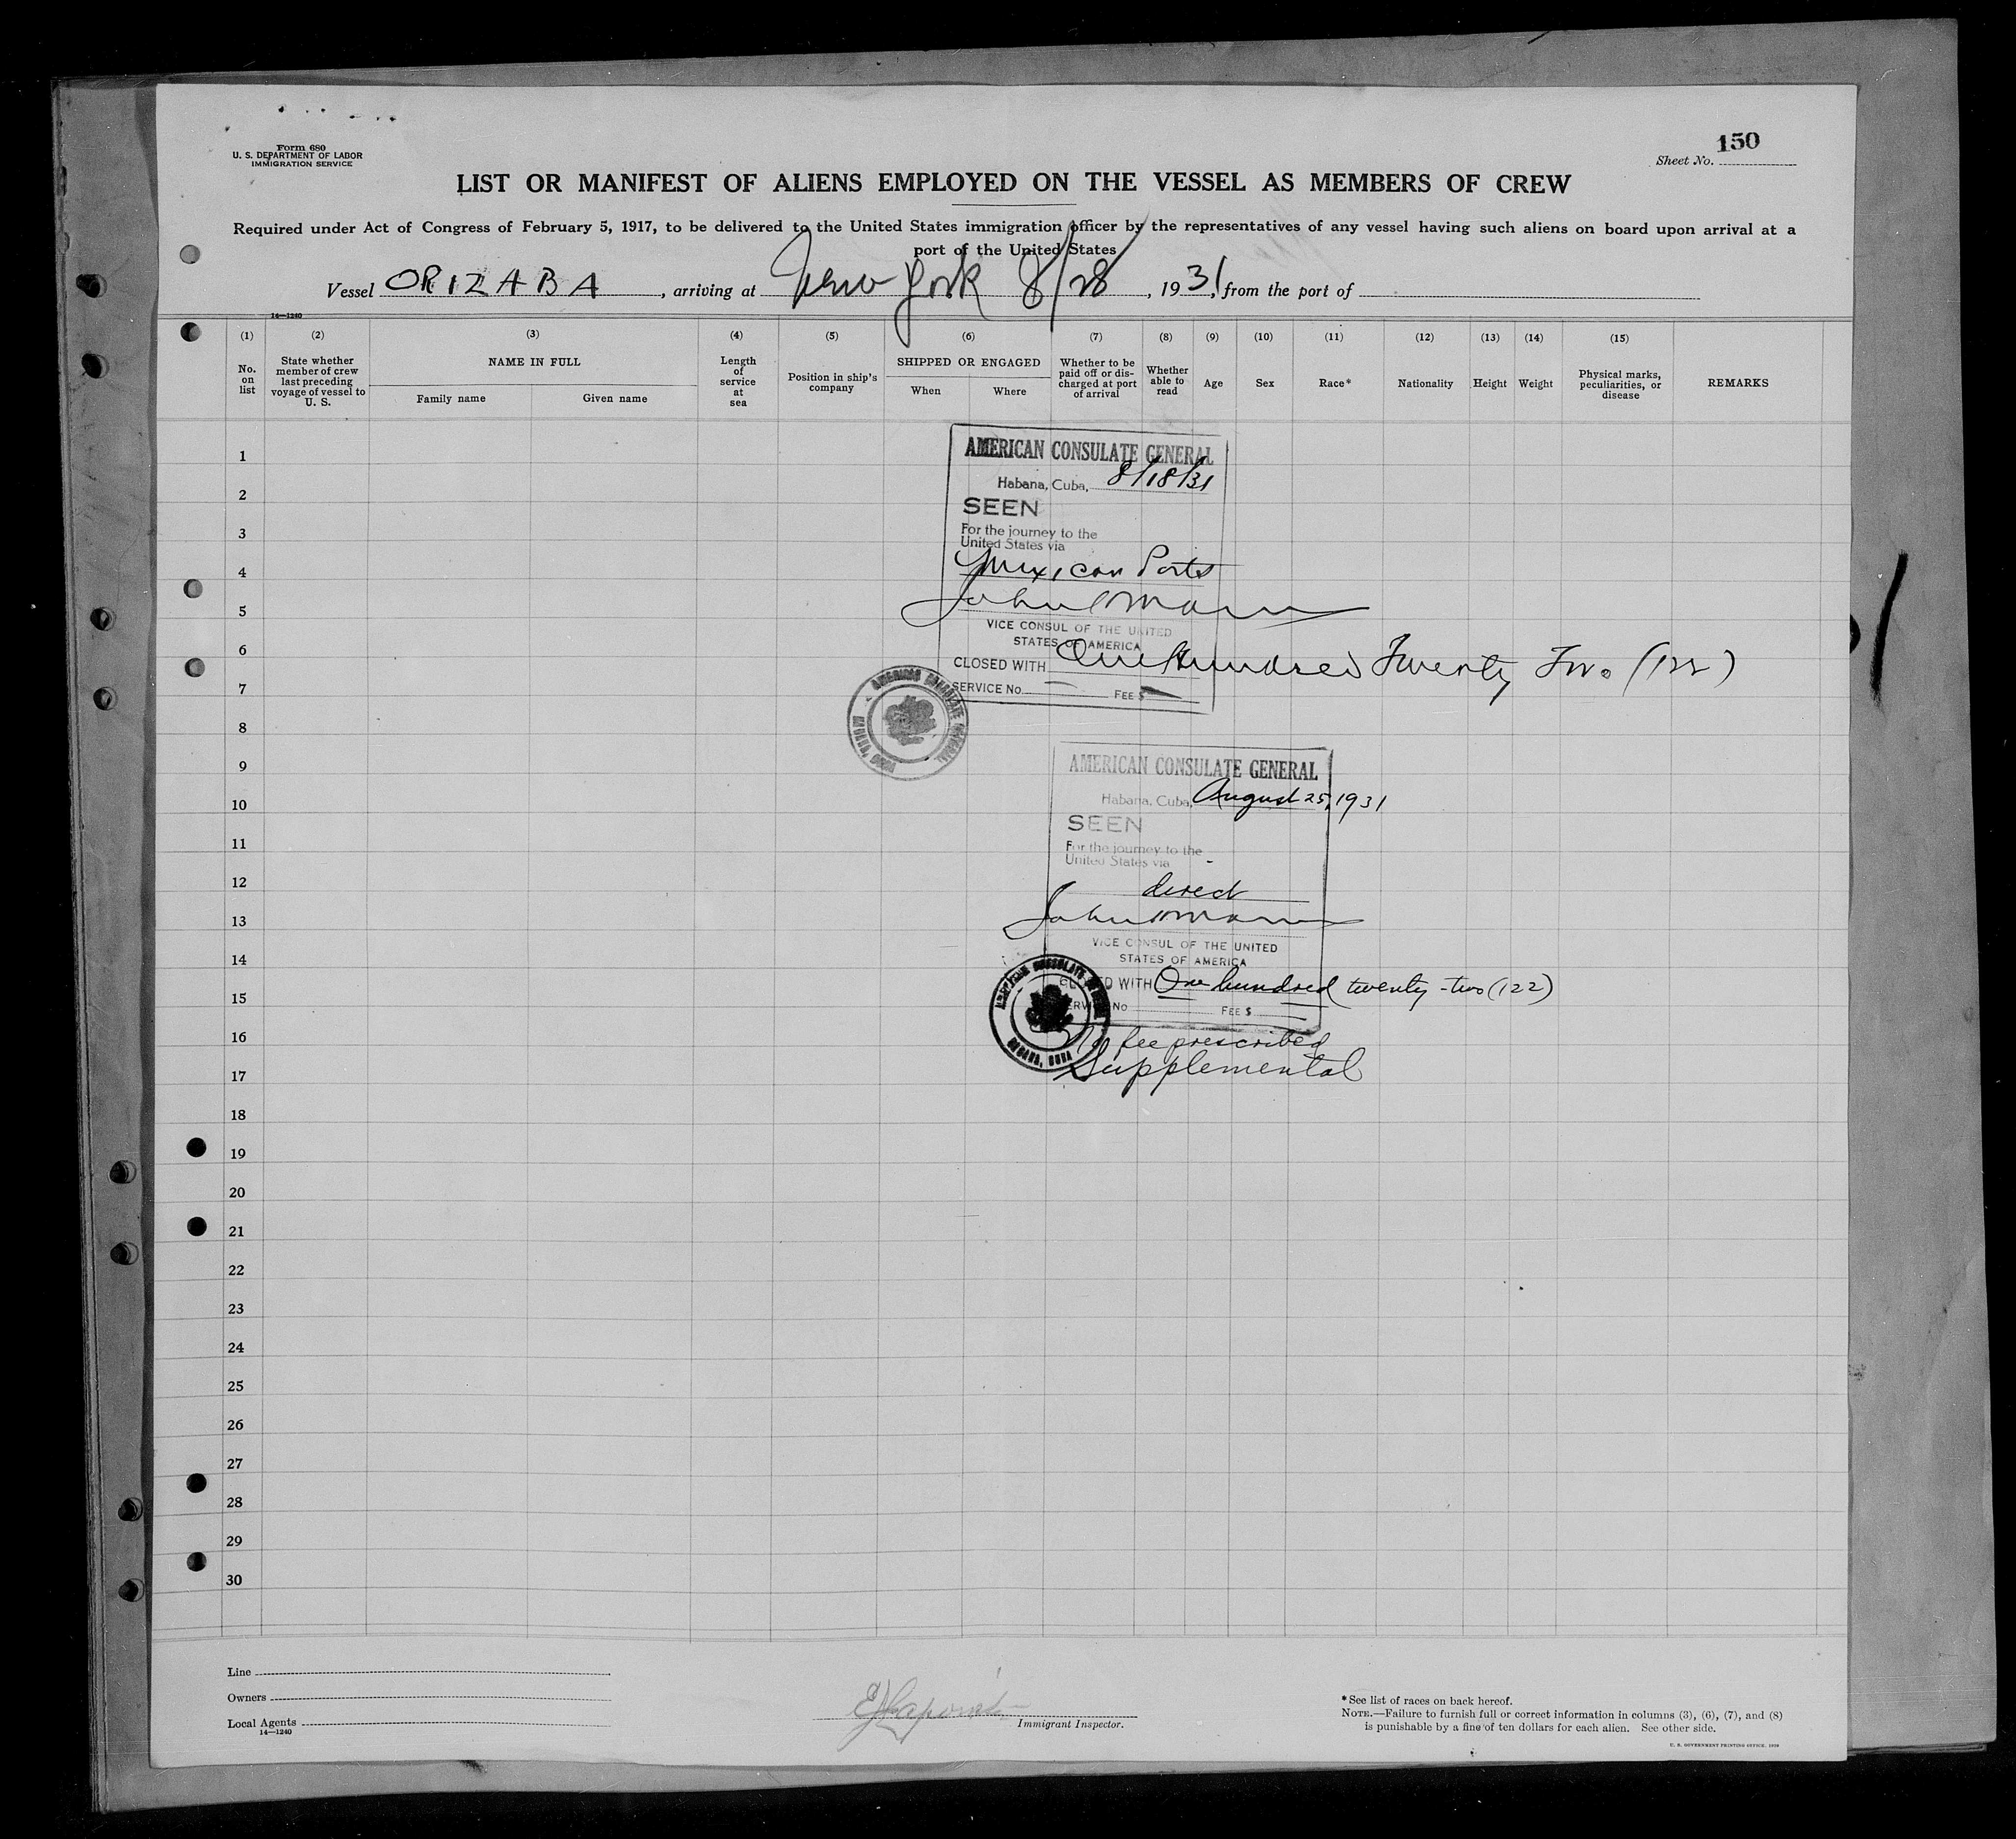 Form 680
U. S. DEPARTMENT OF LABOR
IMMIGRATION SERVICE
Sheet No. 150
LIST OR MANIFEST OF ALIENS EMPLOYED ON THE VESSEL AS MEMBERS OF CREW
Required under Act of Congress of February 5, 1917, to be delivered to the United States immigration officer by the representatives of any vessel having such aliens on board upon arrival at a
port of the United States
Vessel ORIZABA, arriving at New York 8/28, 1931, from the port of
14—1240
(1) (2) (3) (4) (5) (6) (7) (8) (9) (10) (11) (12) (13) (14) (15)
No. on list
State whether member of crew last preceding voyage of vessel to U. S.
NAME IN FULL
Family name
Given name
Length of service at sea
Position in ship's company
SHIPPED OR ENGAGED
When
Where
Whether to be paid off or discharged at port of arrival
Whether able to read
Age
Sex
Race*
Nationality
Height
Weight
Physical marks, peculiarities, or disease
REMARKS
1
2
3
4
5
6
7
8
9
10
11
12
13
14
15
16
17
18
19
20
21
22
23
24
25
26
27
28
29
30
AMERICAN CONSULATE GENERAL
Habana, Cuba, 8/18/31
SEEN
For the journey to the
United States via
Mexican Ports
VICE CONSUL OF THE UNITED
STATES OF AMERICA
CLOSED WITH One Hundred Twenty Two (122)
SERVICE No. FEE $
AMERICAN CONSULATE GENERAL
HABANA, CUBA
AMERICAN CONSULATE GENERAL
Habana, Cuba, August 25, 1931
SEEN
For the journey to the
United States via
direct
VICE CONSUL OF THE UNITED
STATES OF AMERICA
CLOSED WITH One hundred twenty-two (122)
SERVICE No FEE $
No fee prescribed
Supplemental
HABANA, CUBA
Line
Owners
Local Agents
14—1240
Immigrant Inspector.
*See list of races on back hereof.
NOTE.—Failure to furnish full or correct information in columns (3), (6), (7), and (8)
is punishable by a fine of ten dollars for each alien. See other side.